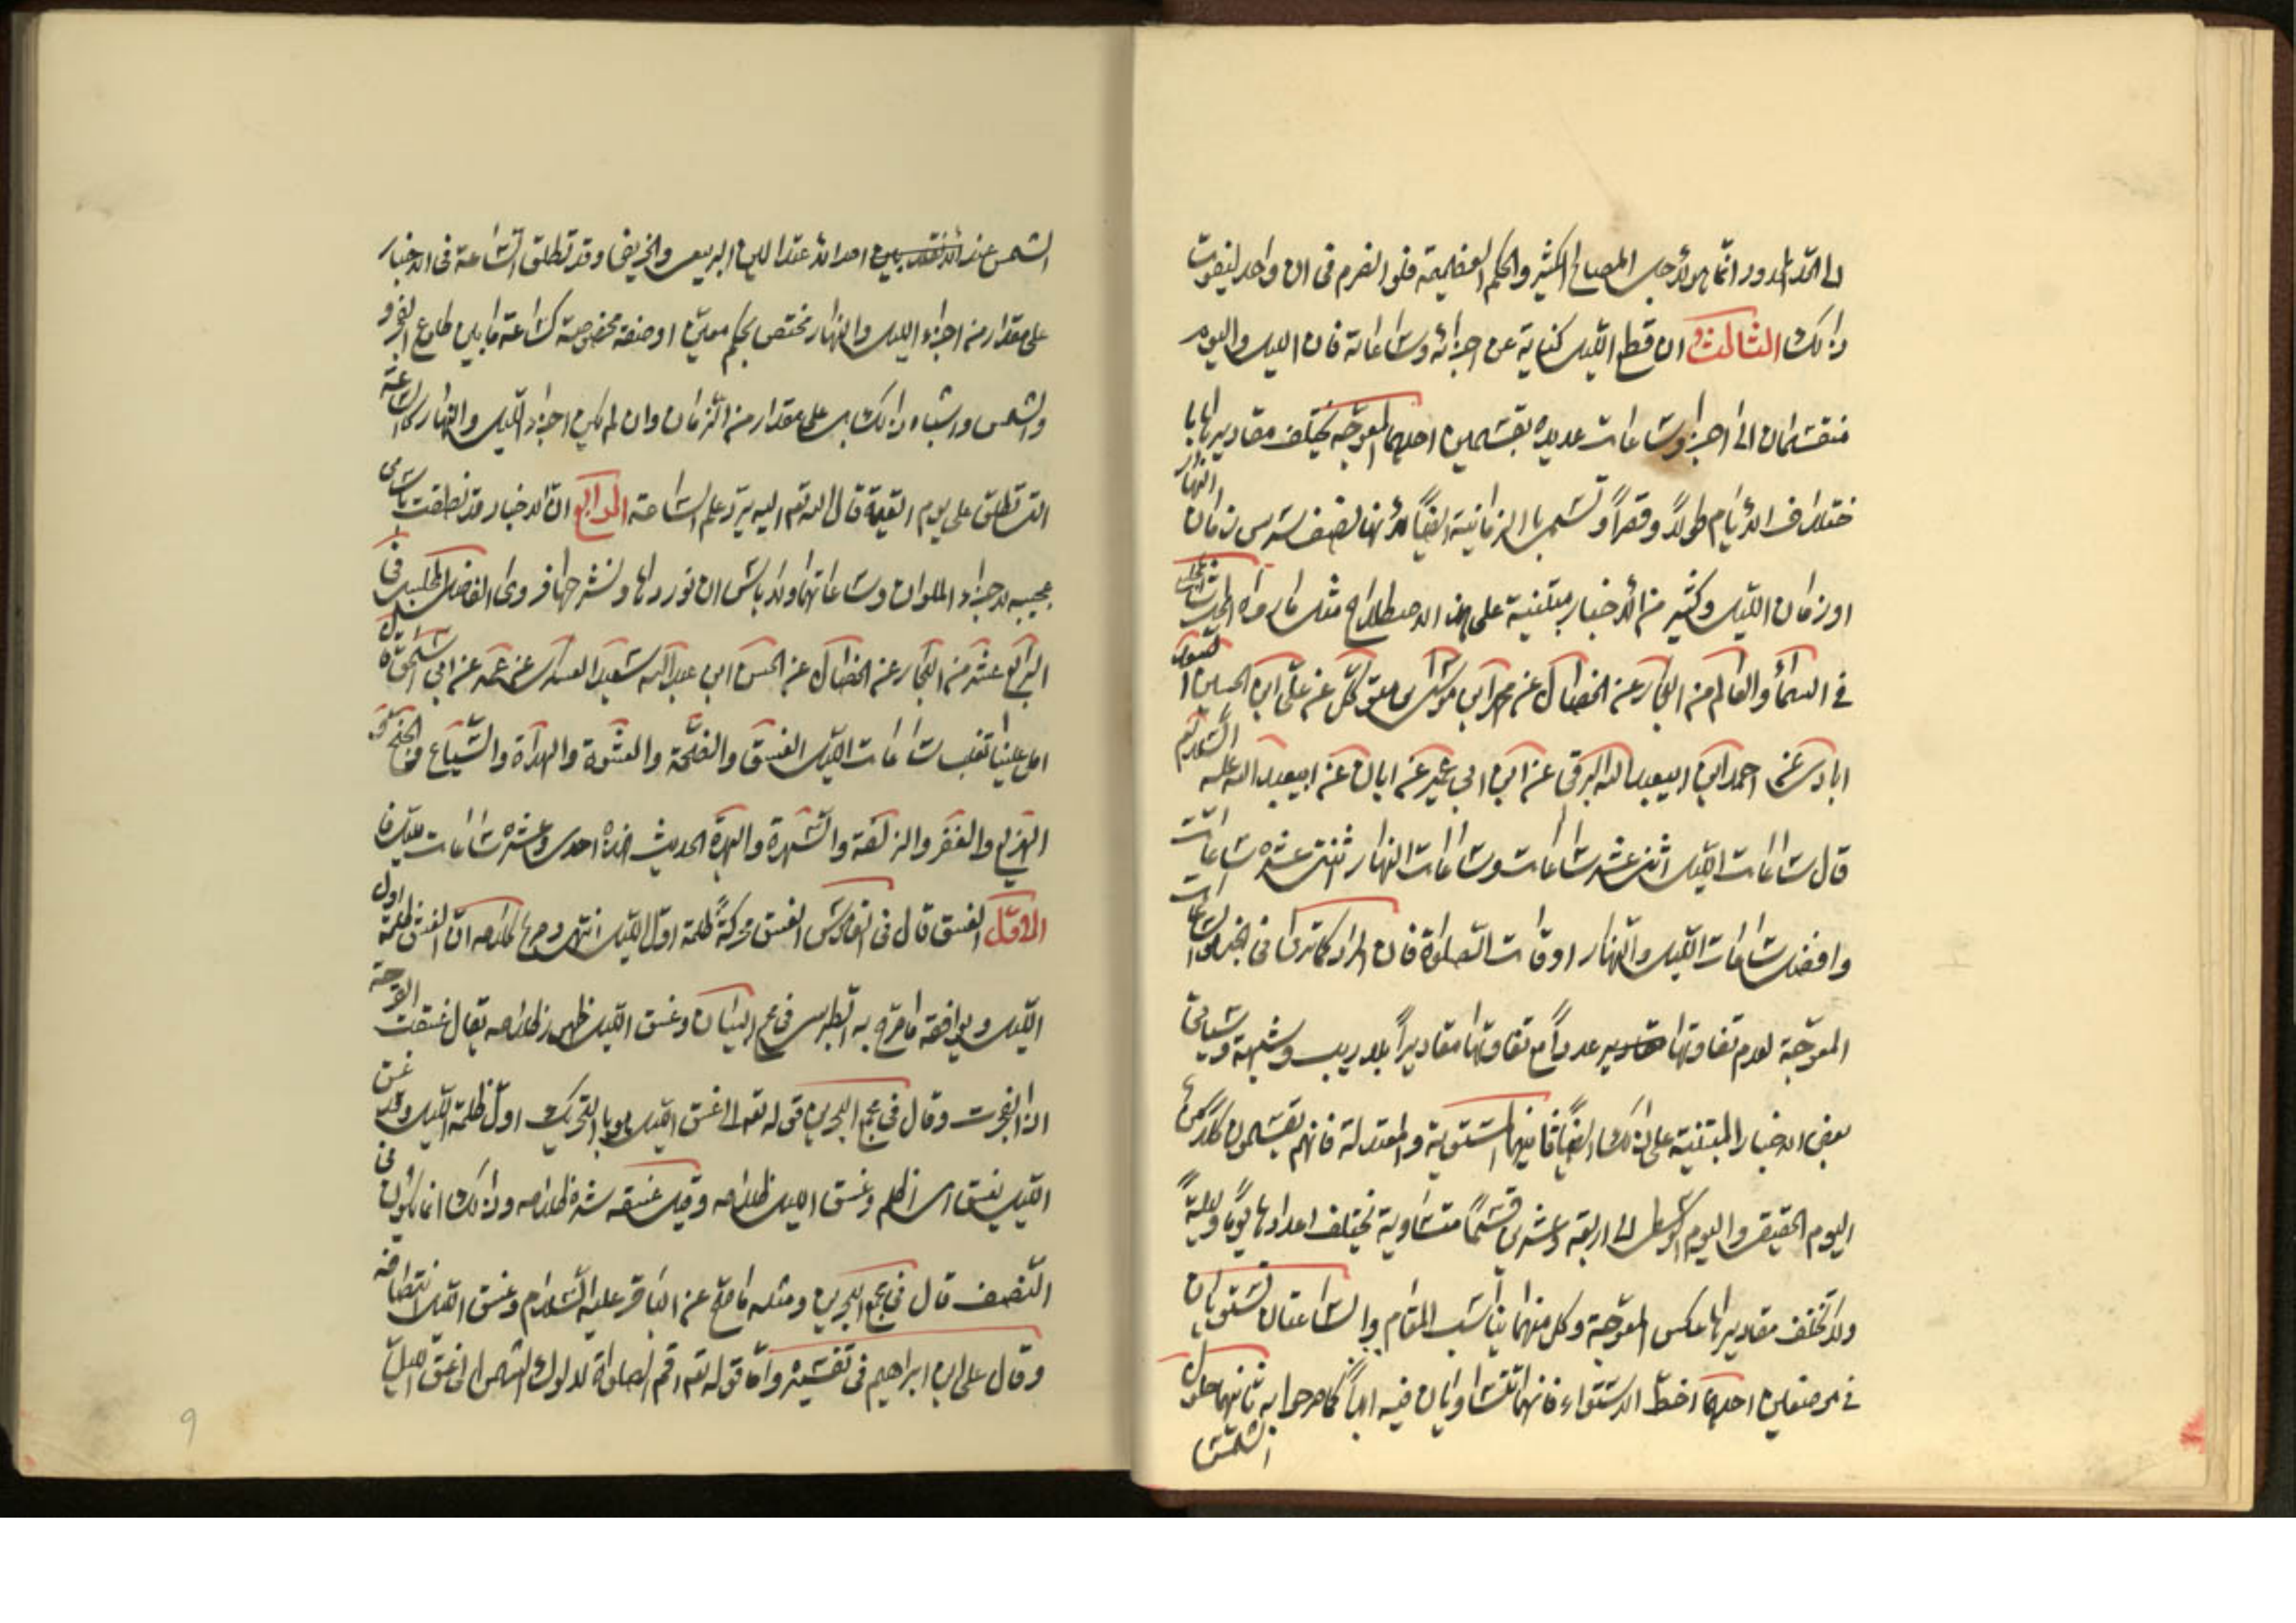 الى الحد المحدود انما هو لأجل المصالح الكثير والحكم العظيمة فلو انصرم في ان واحد ليفوت
ذالك الثالث ان قطع الليل كناية عن اجزائه وساعاته فان الليل واليوم
منقسمان الى اجزاء وساعات عديده بقسمين احدهما المعوجه يختلف مقاديرها با
ختلاف الأيام طولاً وقصراً وتسمى بالزمانية ايضاً لأنها نصف سدس زمان النهار
او زمان الليل وكثير من الأخبار مبتنية على هذا الاصطلاح مثل ما رواه المجلسي
في السماء والعالم من البحار عن الخصال عن محمد ابن موسى ابن متوكل عن علي ابن الحسين ا
ابادي عن احمد ابن ابيعبد الله البرقي عن ابن ابي عمير عن ابان عن ابيعبد الله عليه السلام
قال ساعات الليل اثنتى عشر ساعات وساعات النهار اثنتى عشره ساعات
وافضل ساعات الليل والنهار اوقات الصلوة فان المراد كما ترى في الخبر الساعات
المعوجة لعدم تفاوتها عدداً مع تفاوتها مقاديراً بلا ريب وشبهة وسياتي
بعض الاخبار المبتنية على ذالك ايضاً ثانيهما المستوية والمعتدلة فانهم يقسمون كلا من
اليوم الحقيقي واليوم الوسطى الى اربعة وعشرين قسماً متساوية تختلف اعدادها يوماً وليلةً
ولا تختلف مقاديرها عكس المعوجة وكل منهما يناسب المقام والساعتان تستويان
في موضعين احدهما خط الاستواء فانهما تتساويان فيه ابداً كما صرحوا به ثانيهما حلول
الشمس
الشمس عند احد الاعتدالين الربيعي والخريفي وقد تطلق الساعة في الاخبار
على مقدار من اجزاء الليل والنهار مختص بحكم معين او صفة مخصوصة كساعة ما بين طلوع الفجر و
والشمس واشباه ذالك بل على مقدار من الزمان وان لم يكن اجزاء الليل والنهار كالساعة
التي تطلق على يوم القيمة قال الله تعم اليه يرد علم الساعة الرابع ان الاخبار قد نطقت باسامي
عجيبه لاجزاء الملوان وساعاتهما ولا باس ان نوردها ونشرحها فروى الفاضل المجلسي في
الرابع عشر من البحار عن الخصال عن الحسن ابن عبد الله سعيد العسكري عن عمه عن ابي اسحق قال
املى علينا تغلب ساعات الليل الغسق والفحمة والعشوة والهدأة والسباع والجنح
الهزيع والغفر والزلفة والسحرة والبهرة الحديث فهذه احدى وعشره ساعات لليل فا
الاول الغسق قال في القاموس الغسق محركةً ظلمة اول الليل انتهى ومرجع كلامه ان الغسق ظلمة اول
الليل ويوافقه ما صرح به الطبرسي في مجمع البيان وغسق الليل ظهور ظلامه يقال غسقت القرحة
اذا انفجرت وقال في مجمع البحرين قوله تعم الى غسق الليل هو بالتحريك اول ظلمة الليل وقد غسق
الليل يغسق اى اظلم وغسق الليل ظلامه وقيل غسقه شدة ظلامه وذالك انما يكون في
النصف قال في مجمع البحرين ومثله ما صح عن الباقر عليه السلام وغسق الليل انتصافه
وقال على ابن ابراهيم في تفسيره واما قوله تعم اقم الصلوة لدلوك الشمس الى غسق الليل
٩